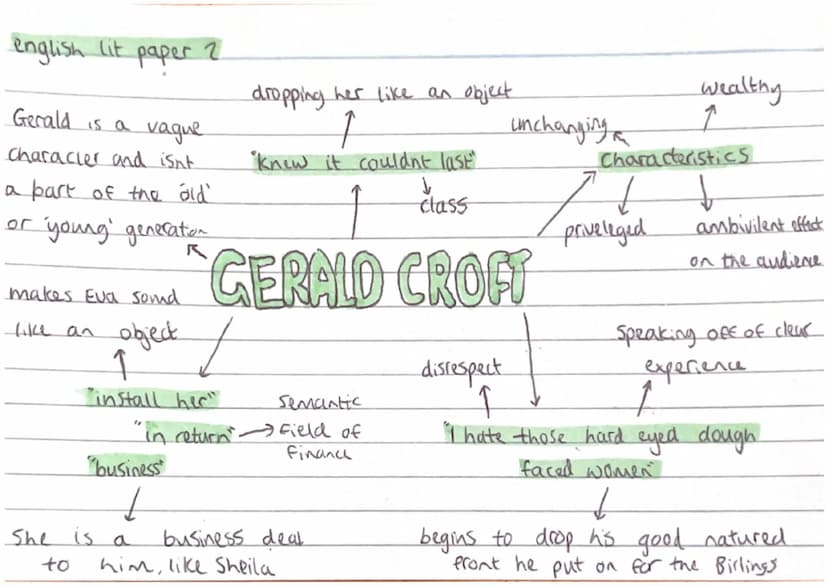 english lit paper 2
dropping her like an object
wealthy
Gerald is a vague
character and isnt
a part of the 'old'
or 'young' generation
unchanging
"knew it couldnt last"
class
characteristics
priveleged
ambivilent effect
on the audience
GERALD CROFT
makes Eva sound
like an object
"install her"
"in return"
"business"
semantic
field of
finance
She is a business deal
to him, like Sheila
disrespect
speaking off of clear
experience
"I hate those hard eyed dough
faced women"
begins to drop his good natured
front he put on for the Birlings